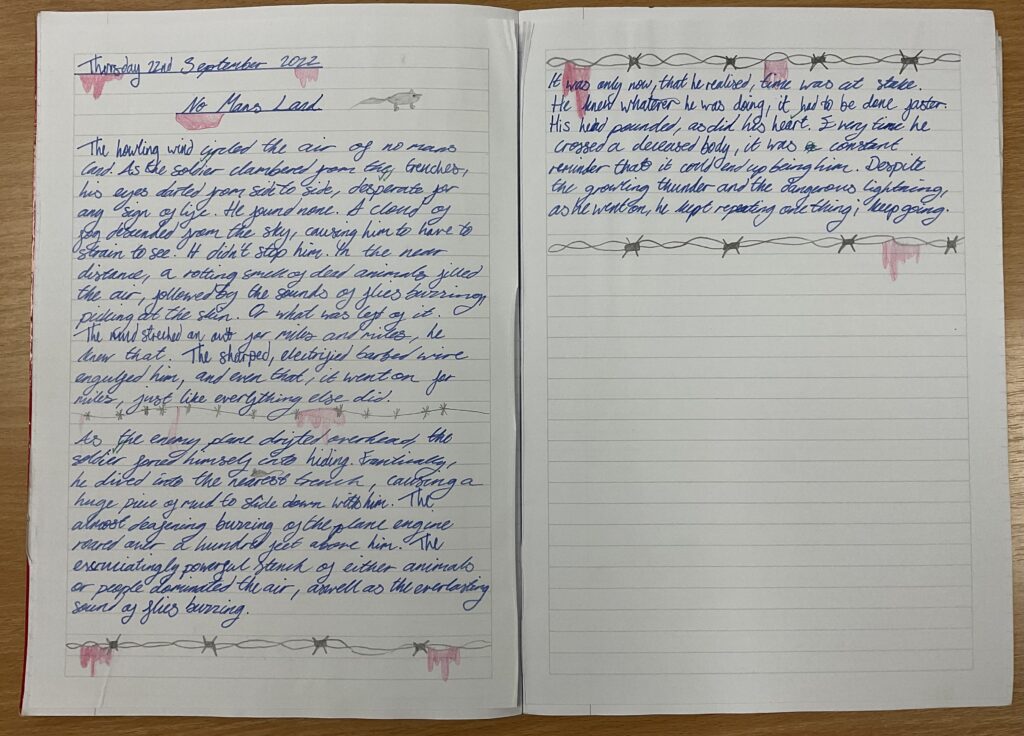 Thursday 22nd September 2022
No Mans Land
The howling wind cycled the air of no mans
land. As the soldier clambered from the trenches,
his eyes darted from side to side, desperate for
any sign of life. He found none. A cloud of
fog descended from the sky, causing him to have to
strain to see. It didn't stop him. In the near
distance, a rotting smell of dead animals filled
the air, followed by the sounds of flies buzzing,
picking at the skin. Or what was left of it.
The mud streched on out for miles and miles, he
knew that. The sharped, electrified barbed wire
engulfed him, and even that, it went on for
miles, just like everything else did.
As the enemy plane drifted overhead, the
soldier forced himself into hiding. Frantically,
he dived into the nearest trench, causing a
huge piece of mud to slide down with him. The
almost deafening buzzing of the plane engine
roared over a hundred feet above him. The
excruciatingly powerful stench of either animals
or people dominated the air, aswell as the everlasting
sound of flies buzzing.
It was only now, that he realised, time was at stake.
He knew whatever he was doing, it had to be done faster.
His head pounded, as did his heart. Every time he
crossed a deceased body, it was a constant
reminder that it could end up being him. Despite
the growling thunder and the dangerous lightning,
as he went on, he kept repeating one thing; keep going.